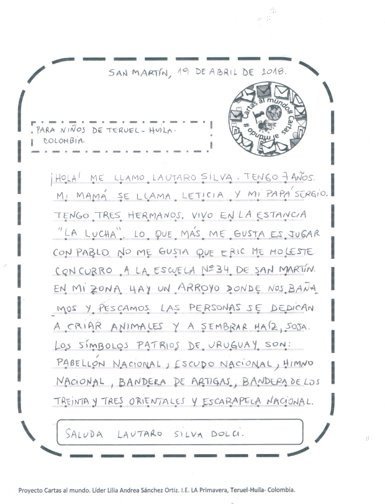 SAN MARTÍN, 19 DE ABRIL DE 2018.
Cartas al mundo Cartas al mundo
PARA NIÑOS DE TERUEL-HUILA-
COLOMBIA
¡HOLA! ME LLAMO LAUTARO SILVA. TENGO 7 AÑOS.
MI MAMÁ SE LLAMA LETICIA Y MI PAPÁ SERGIO.
TENGO TRES HERMANOS, VIVO EN LA ESTANCIA
"LA LUCHA". LO QUE MÁS ME GUSTA ES JUGAR
CON PABLO NO ME GUSTA QUE ERIC ME MOLESTE
CONCURRO A LA ESCUELA Nº34 DE SAN MARTÍN.
EN MI ZONA HAY UN ARROYO DONDE NOS BAÑA
MOS Y PESCAMOS LAS PERSONAS SE DEDICAN
A CRIAR ANIMALES Y A SEMBRAR MAÍZ, SOJA.
LOS SÍMBOLOS PATRIOS DE URUGUAY SON:
PABELLÓN NACIONAL, ESCUDO NACIONAL, HIMNO
NACIONAL, BANDERA DE ARTIGAS, BANDERA DE LOS
TREINTA Y TRES ORIENTALES Y ESCARAPELA NACIONAL.
SALUDA LAUTARO SILVA DOLCI.
Proyecto Cartas al mundo. Líder Lilia Andrea Sánchez Ortiz. I.E. LA Primavera, Teruel-Huila- Colombia.